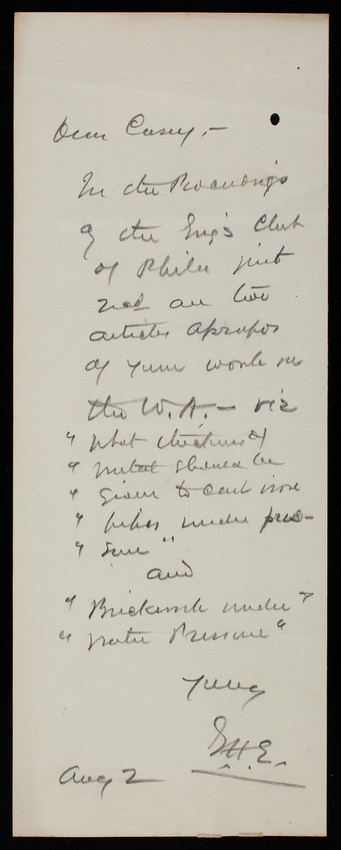 Dear Casey,—
In the Proceedings
of the Eng's Club
of Phila just
recd are two
articles apropos
of your work on
the W.A. — viz
" What thickness of
" metal should be
" given to cast iron
" pipes under pres-
" sure "
and
" Brickwork under "
" water Pressure "
Yours
G.H.E.
Aug 2